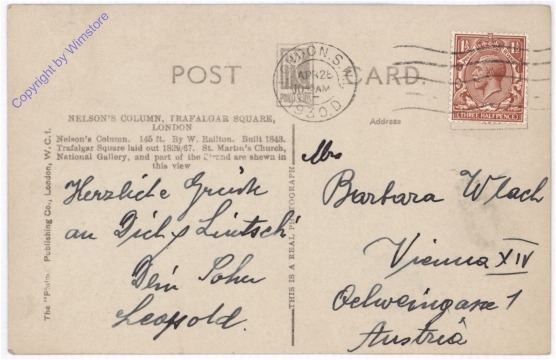 Copyright by Wimstore
POST CARD.
LONDON.S.
APR 28
10- AM
1930.D
THREE HALFPENCE
NELSON'S COLUMN, TRAFALGAR SQUARE,
LONDON
Nelson's Column. 145 ft. By W. Railton. Built 1843.
Trafalgar Square laid out 1829/67. St. Martin's Church,
National Gallery, and part of the Strand are shewn in
this view
Address
The "Photo" Publishing Co., London, W.C.1.
THIS IS A REAL PHOTOGRAPH
Herzliche Grüsse
an Dich & Lintschi
Dein Sohn
Leopold.
Mrs
Barbara Wlach
Vienna XIV
Oelweingasse 1
Austria